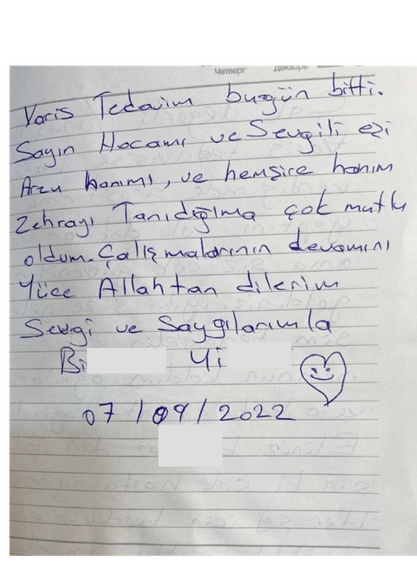 Четверг Декабрь
Varis Tedavim bugün bitti.
Sayın Hocamı ve Sevgili eşi
Arzu hanımı, ve hemşire hanım
Zehrayı Tanıdığıma çok mutlu
oldum. Çalışmalarının devamını
Yüce Allahtan dilerim
Sevgi ve Saygılarımla
Bi Yi
07/09/2022